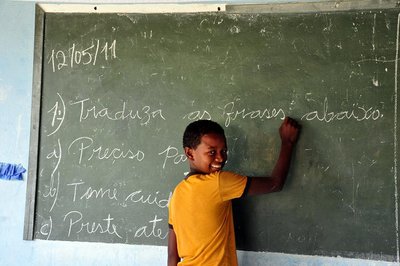 12/05/11
1) Traduza as frases abaixo.
a) Preciso
b) Tome
c) Preste